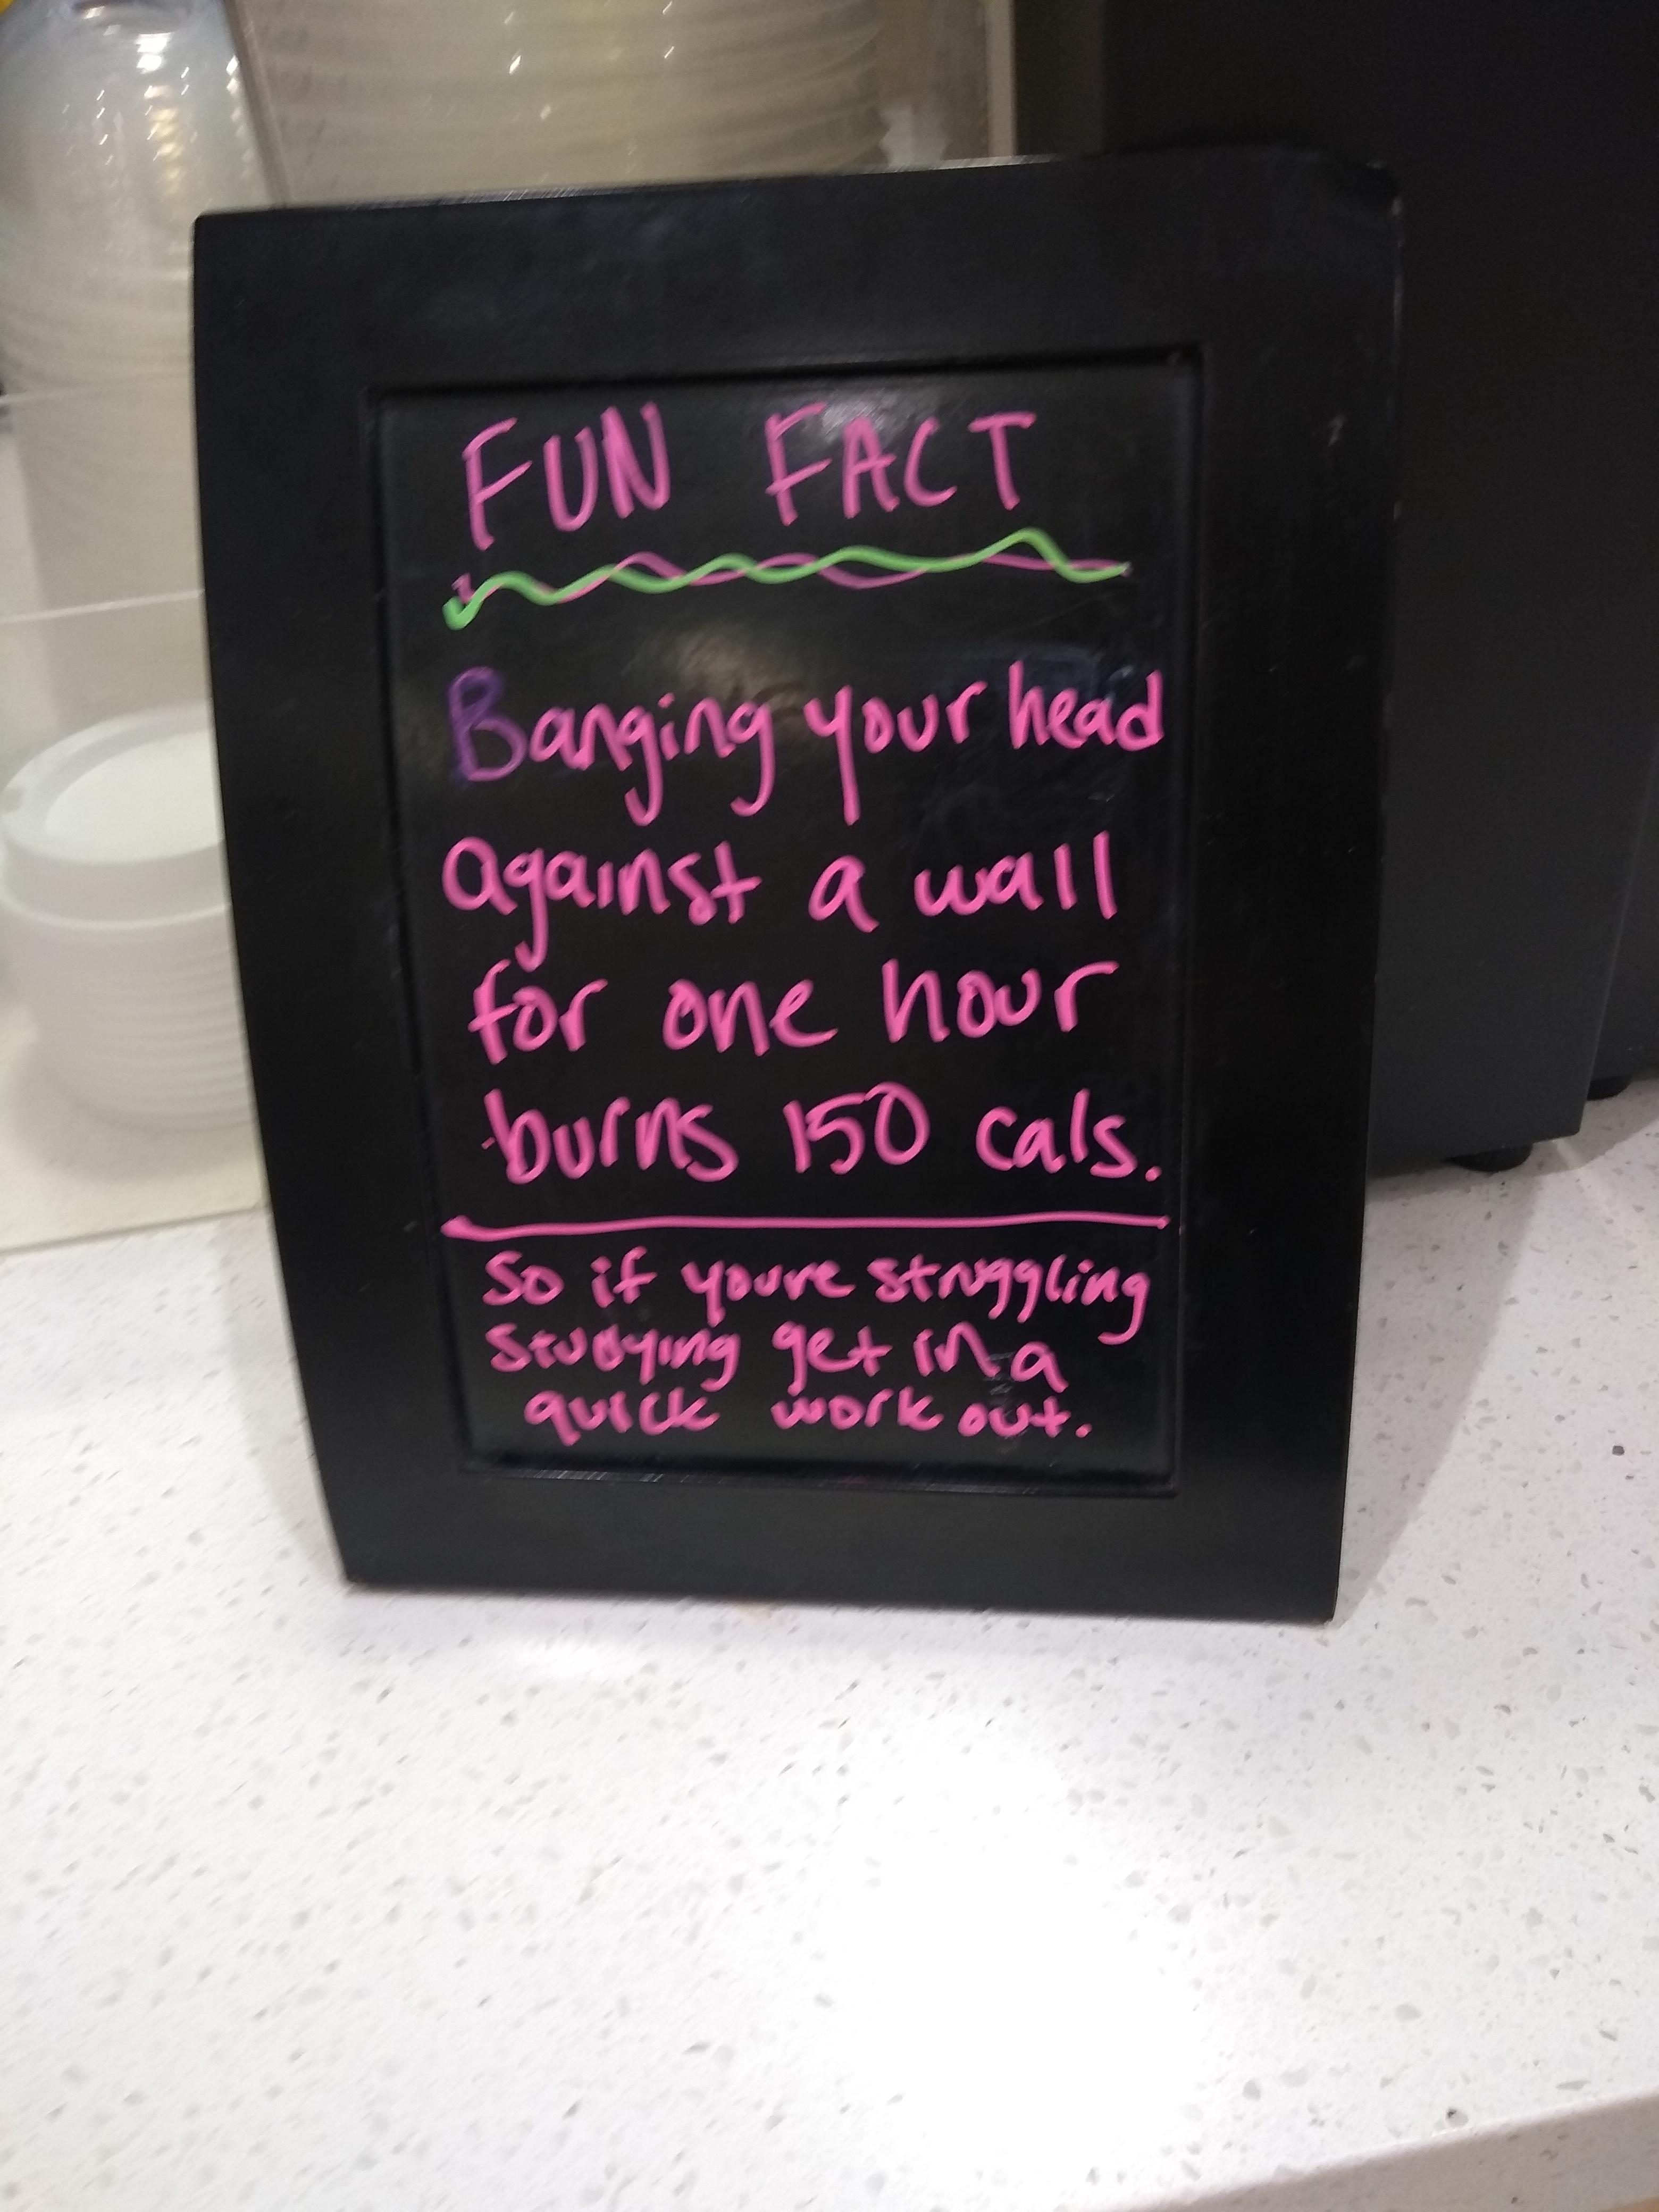 FUN FACT
Banging your head
against a wall
for one hour
burns 150 cals.
So if youre struggling
studying get in a
quick work out.